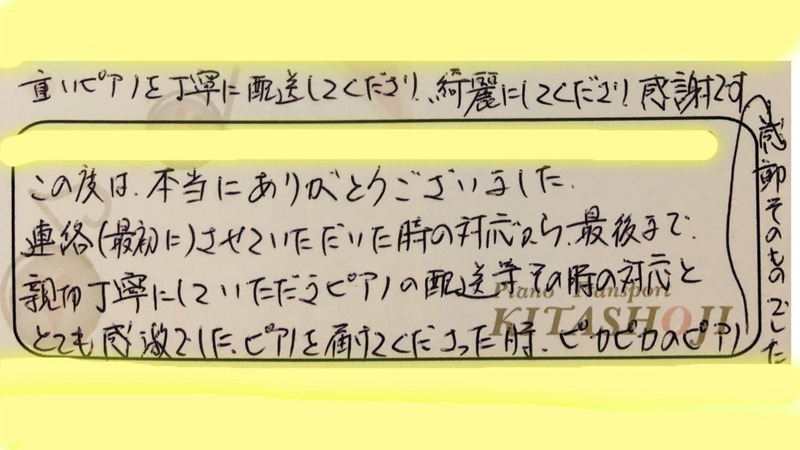 重いピアノを丁寧に配送してくださり、綺麗にしてくださり感謝です
この度は、本当にありがとうございました。
連絡(最初に)させていただいた時の対応から、最後まで、
親切丁寧にしていただきピアノの配送等その時の対応と
とても感激でした。ピアノを届けてくださった時、ピカピカのピアノ
感動そのものでした
Piano Transport
KITASHOJI